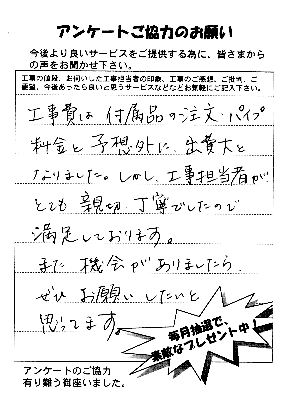 アンケートご協力のお願い
今後より良いサービスをご提供する為に、皆さまから
の声をお聞かせ下さい。
工事の値段、お伺いした工事担当者の印象、工事のご感想、ご批判、ご
要望、今後あったら良いと思うサービスなどなどお気軽にご記入下さい。
工事費は 付属品のご注文・パイプ
料金と予想外に、出費大と
なりました。しかし、工事担当者が
とても 親切、丁寧でしたので
満足しております。
また 機会がありましたら、
ぜひ お願いしたいと
思ってます。
毎月抽選で、
素敵なプレゼント中!
アンケートのご協力
有り難う御座いました。